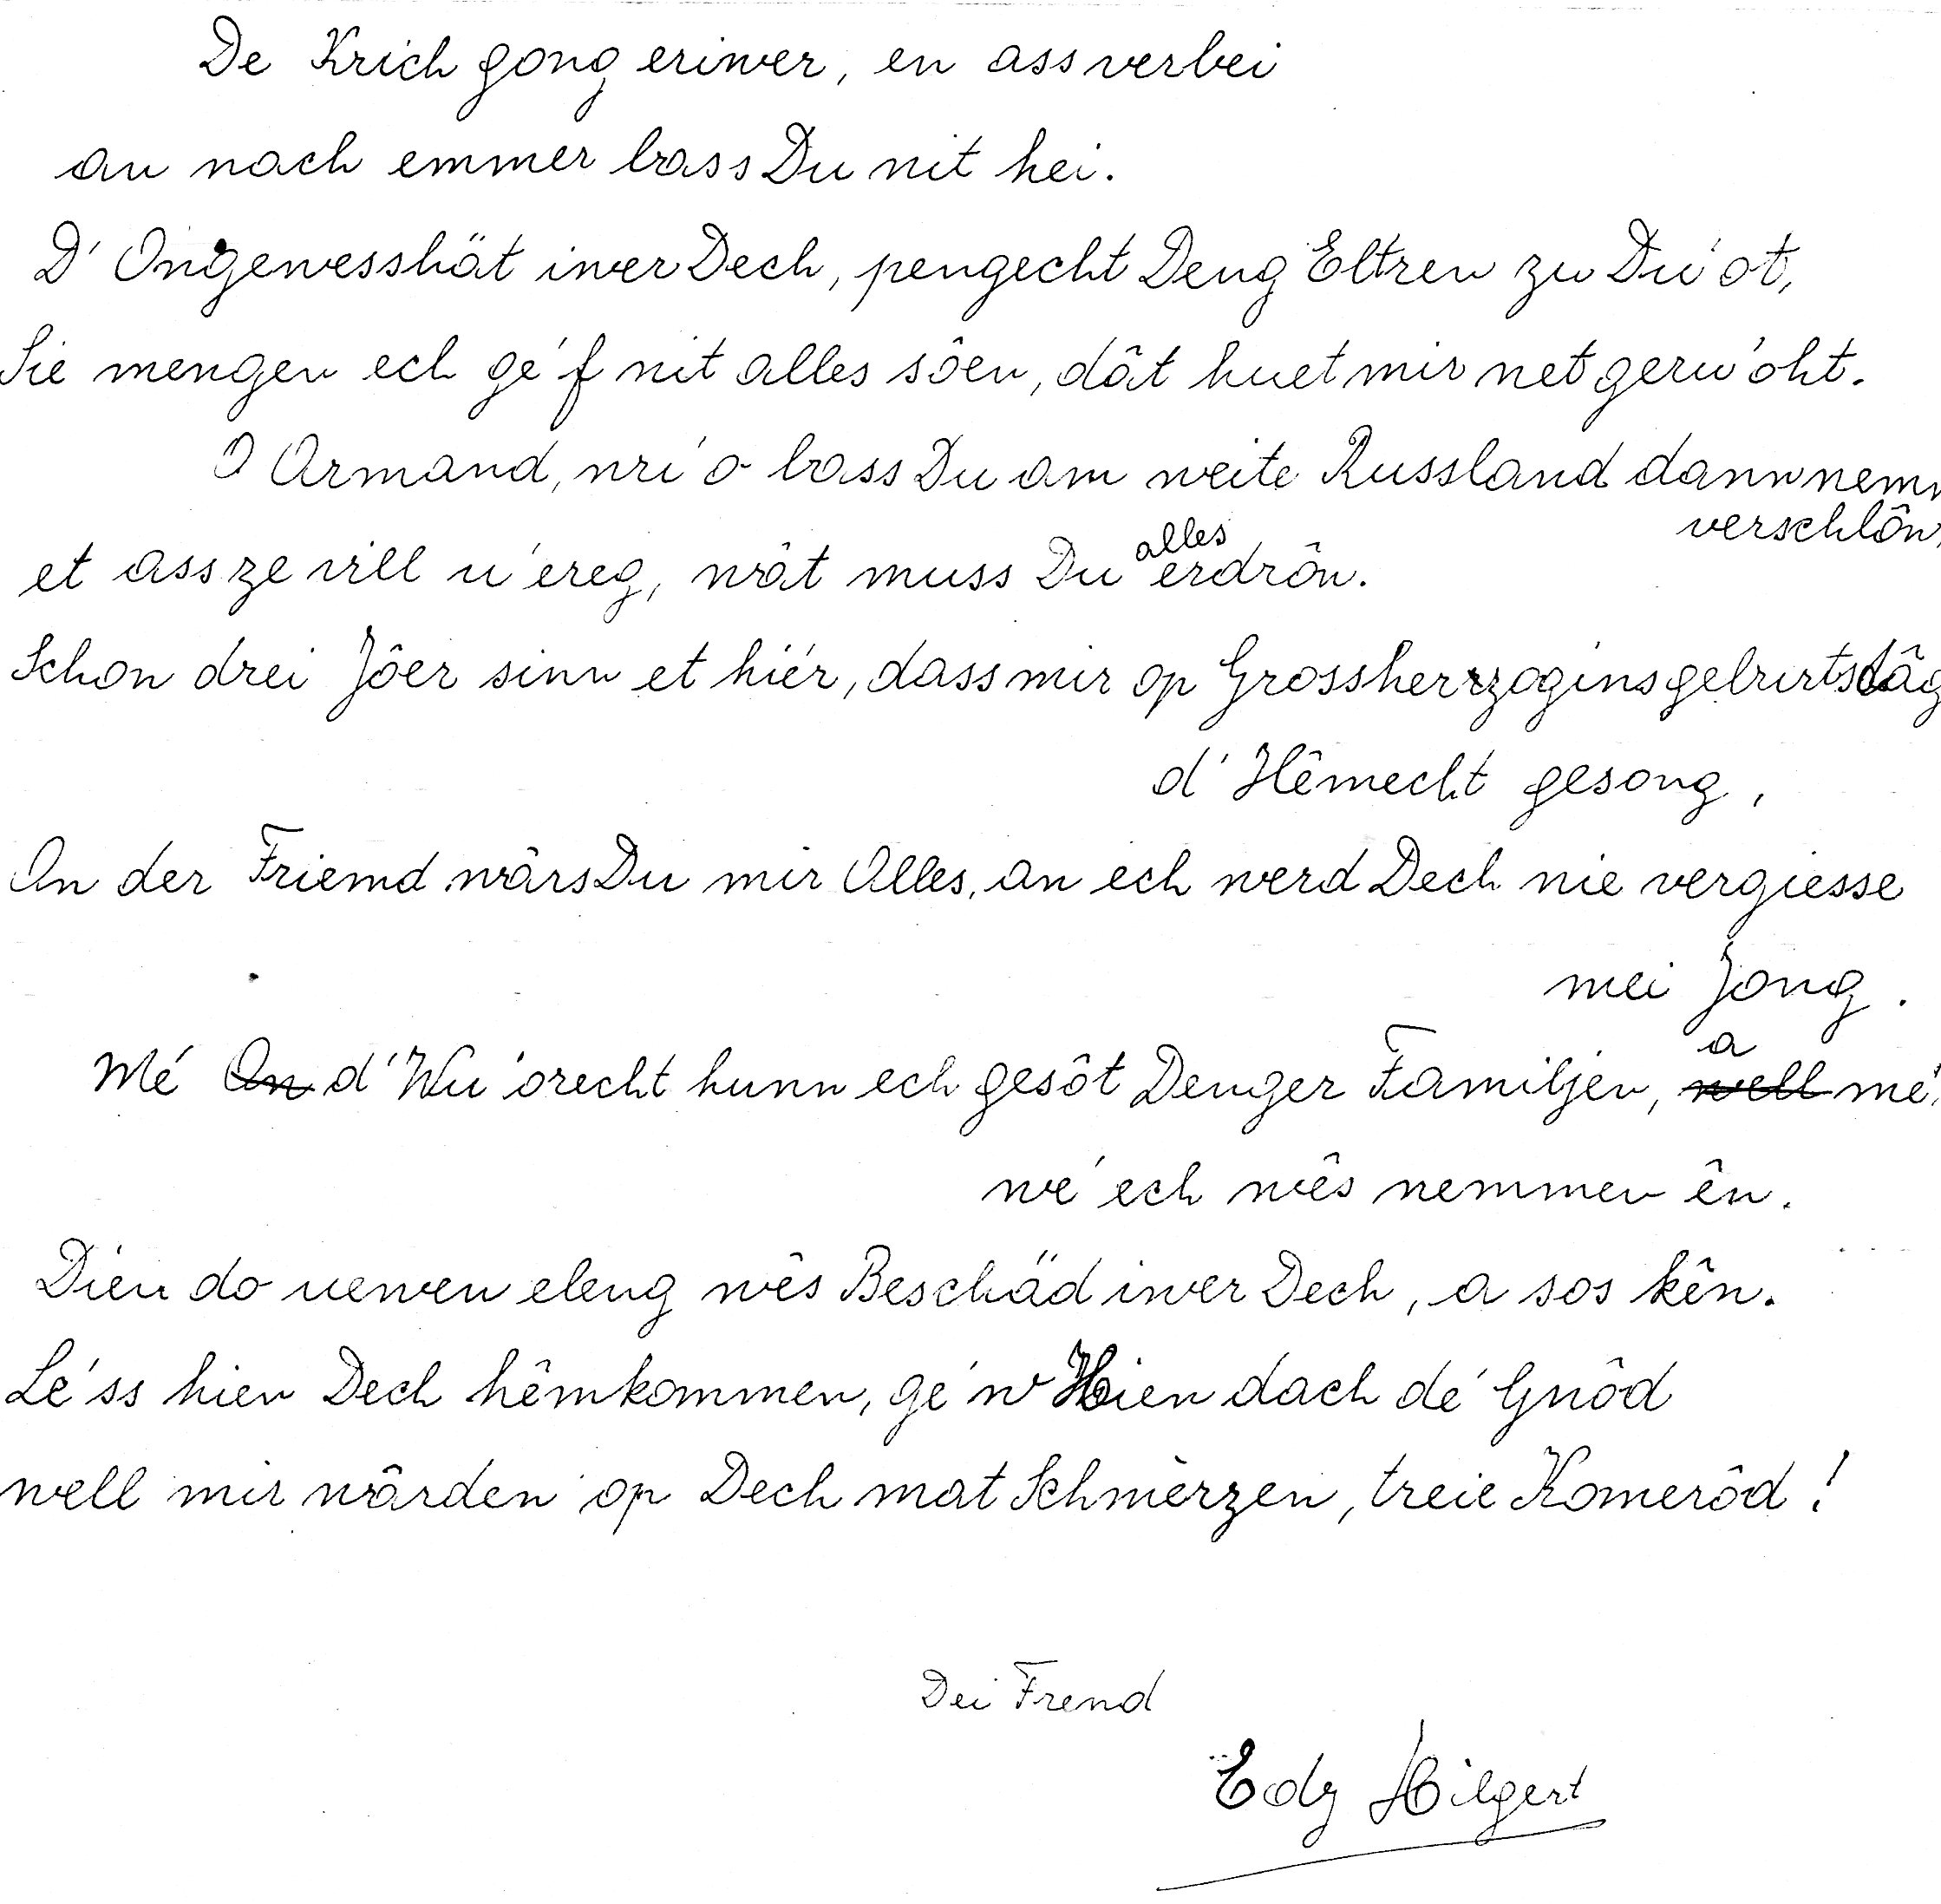 De Krich gong eriwer, en ass verbei
an nach emmer bass Du nit hei.
D'Ongewesshät iwer Dech, pengecht Deng Eltren zu Du'ot,
Sie mengen ech gé'f nit alles sôen, dât huet mir net geru'oht.
O Armand, wi'o bass Du am weite Russland dann nemm
verschlôn,
et ass ze vill u'ereg, wât muss Du alles erdrôn.
Schon drei Jôer sinn et hiér, dass mir op Grossherzoginsgeburtstâg
d'Hêmecht gesong,
An der Friemd wârs Du mir Alles, an ech werd Dech nie vergiesse
mei Jong.
Mé An d'Wu'orecht hunn ech gesôt Denger Familjen, well a mé,
wé ech wês nemmen ên.
Dien do uewen eleng wês Beschäd iwer Dech, a sos kên.
Lé'ss hien Dech hêmkommen, gé'w Hien dach dé Gnôd
well mir wârden op Dech mat Schmèrzen, treie Komerôd!
Dei Frend
Edy Hilgert